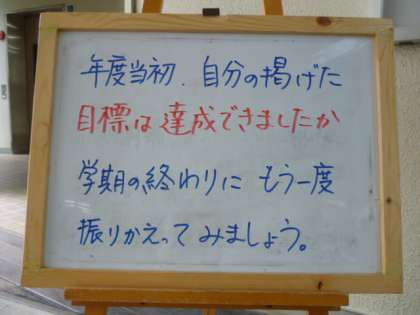 年度当初、自分の掲げた
目標は達成できましたか
学期の終わりに もう一度
振りかえってみましょう。